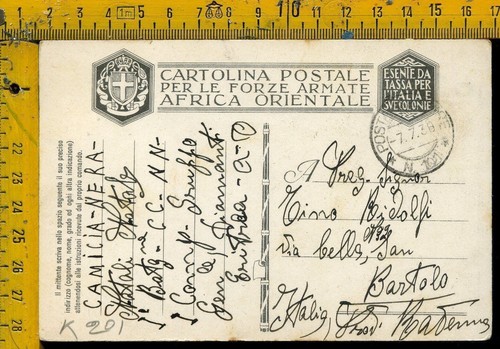 CARTOLINA POSTALE
PER LE FORZE ARMATE
AFRICA ORIENTALE
ESENTE DA
TASSA PER
L'ITALIA E
SUE COLONIE
Il mittente scriva nello spazio seguente il suo preciso
indirizzo (cognome, nome, grado ed ogni altra indicazione)
attenendosi alle istruzioni ricevute dal proprio comando.
CAMICIA-NERA-
Natali Natale
1° Batg - CC-NN-
1° Camp- Gruppo
Gen la Diamanti
Eritrea - a-O
A Preg. Signor
Tino Ridolfi
via Cella, 
San
Bartolo
Italia, Prov. Ravenna
K 201